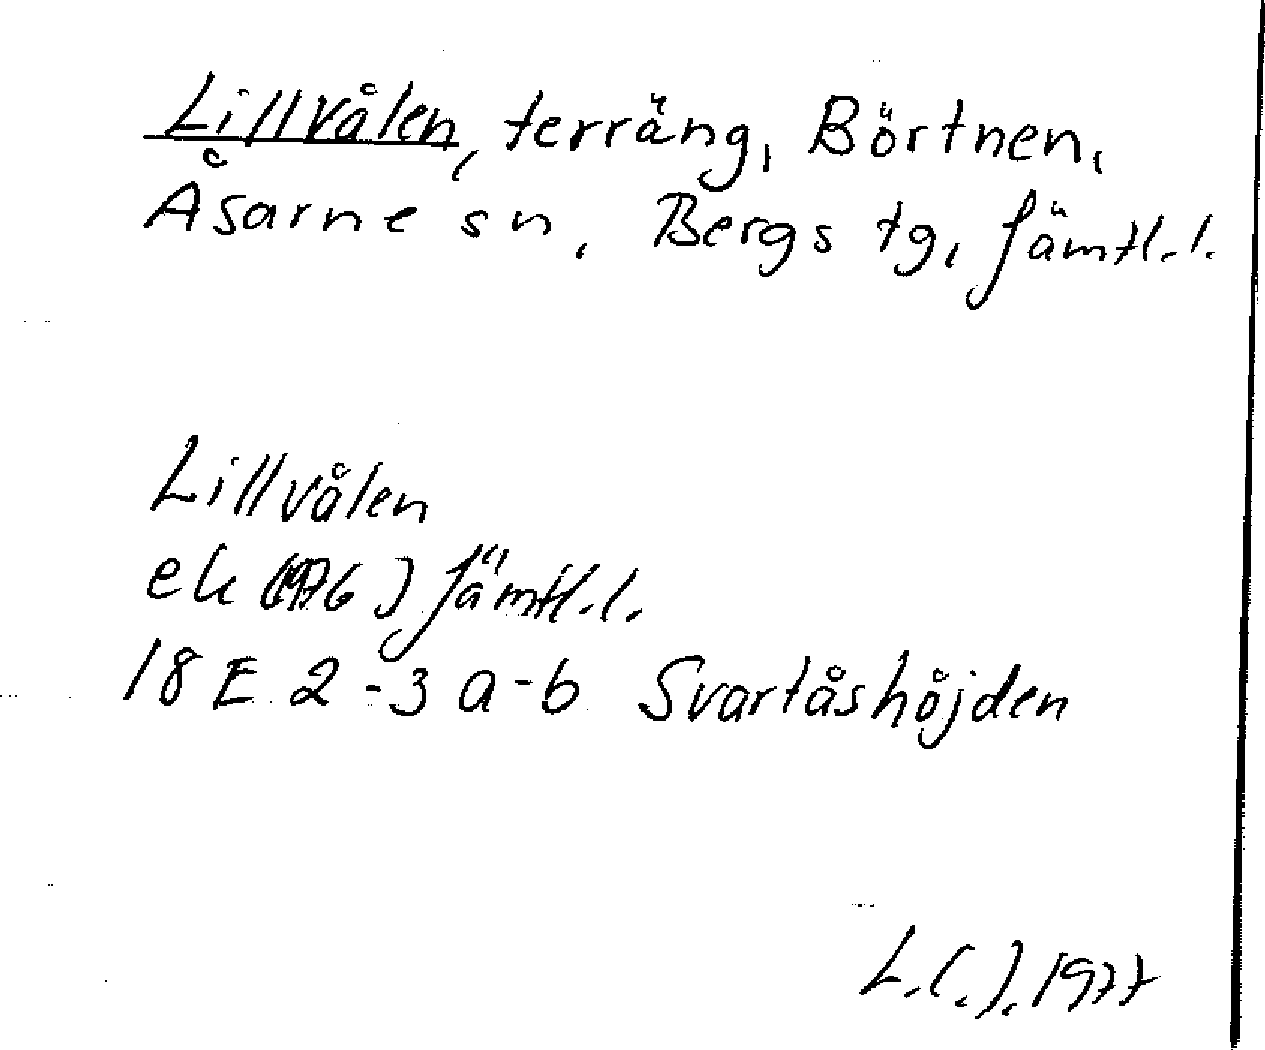 Lillvålen, terräng, Börtnen,
Åsarne sn, Bergs tg, Jämtl. l.
Lillvålen
ek (1976) Jämtl. l.
18 E 2-3 a-b Svartåshöjden
L. C. J. 1977